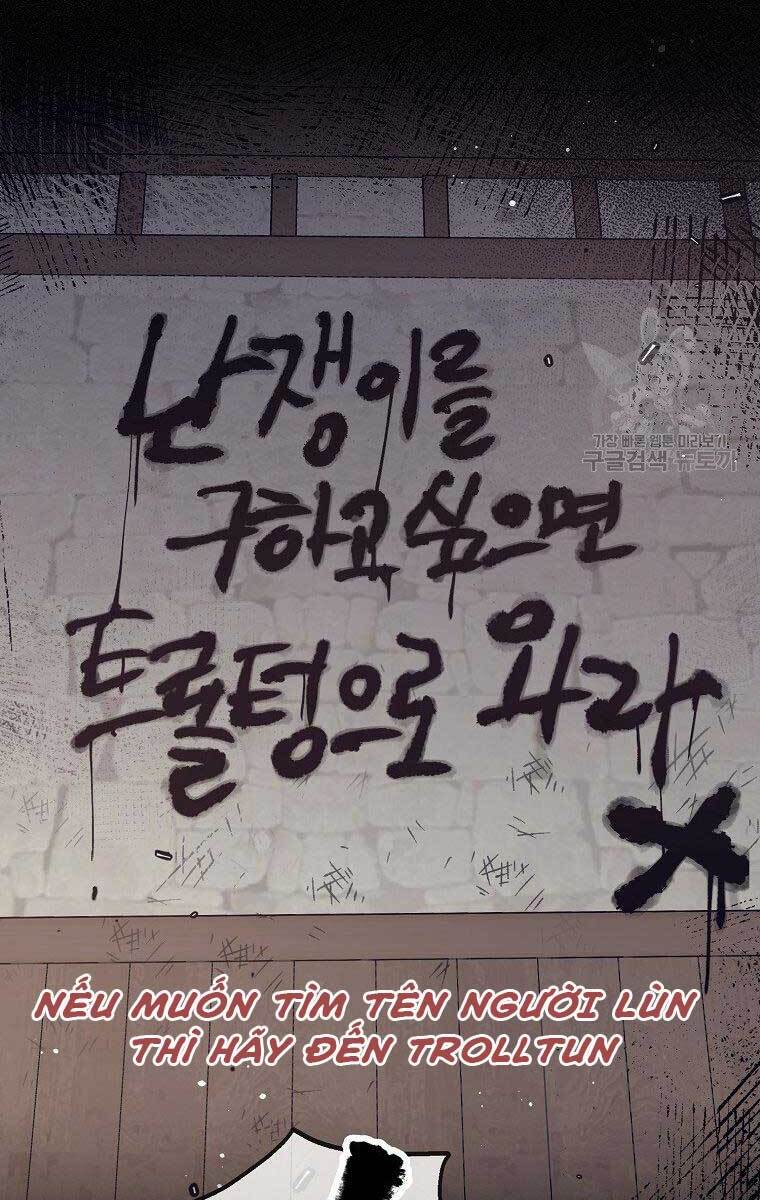 난쟁이를
가장 빠른 웹툰 미리보기
구글검색 뉴토끼
구하고 싶으면
트롤텅으로 와라
NẾU MUỐN TÌM TÊN NGƯỜI LÙN
THÌ HÃY ĐẾN TROLLTUN